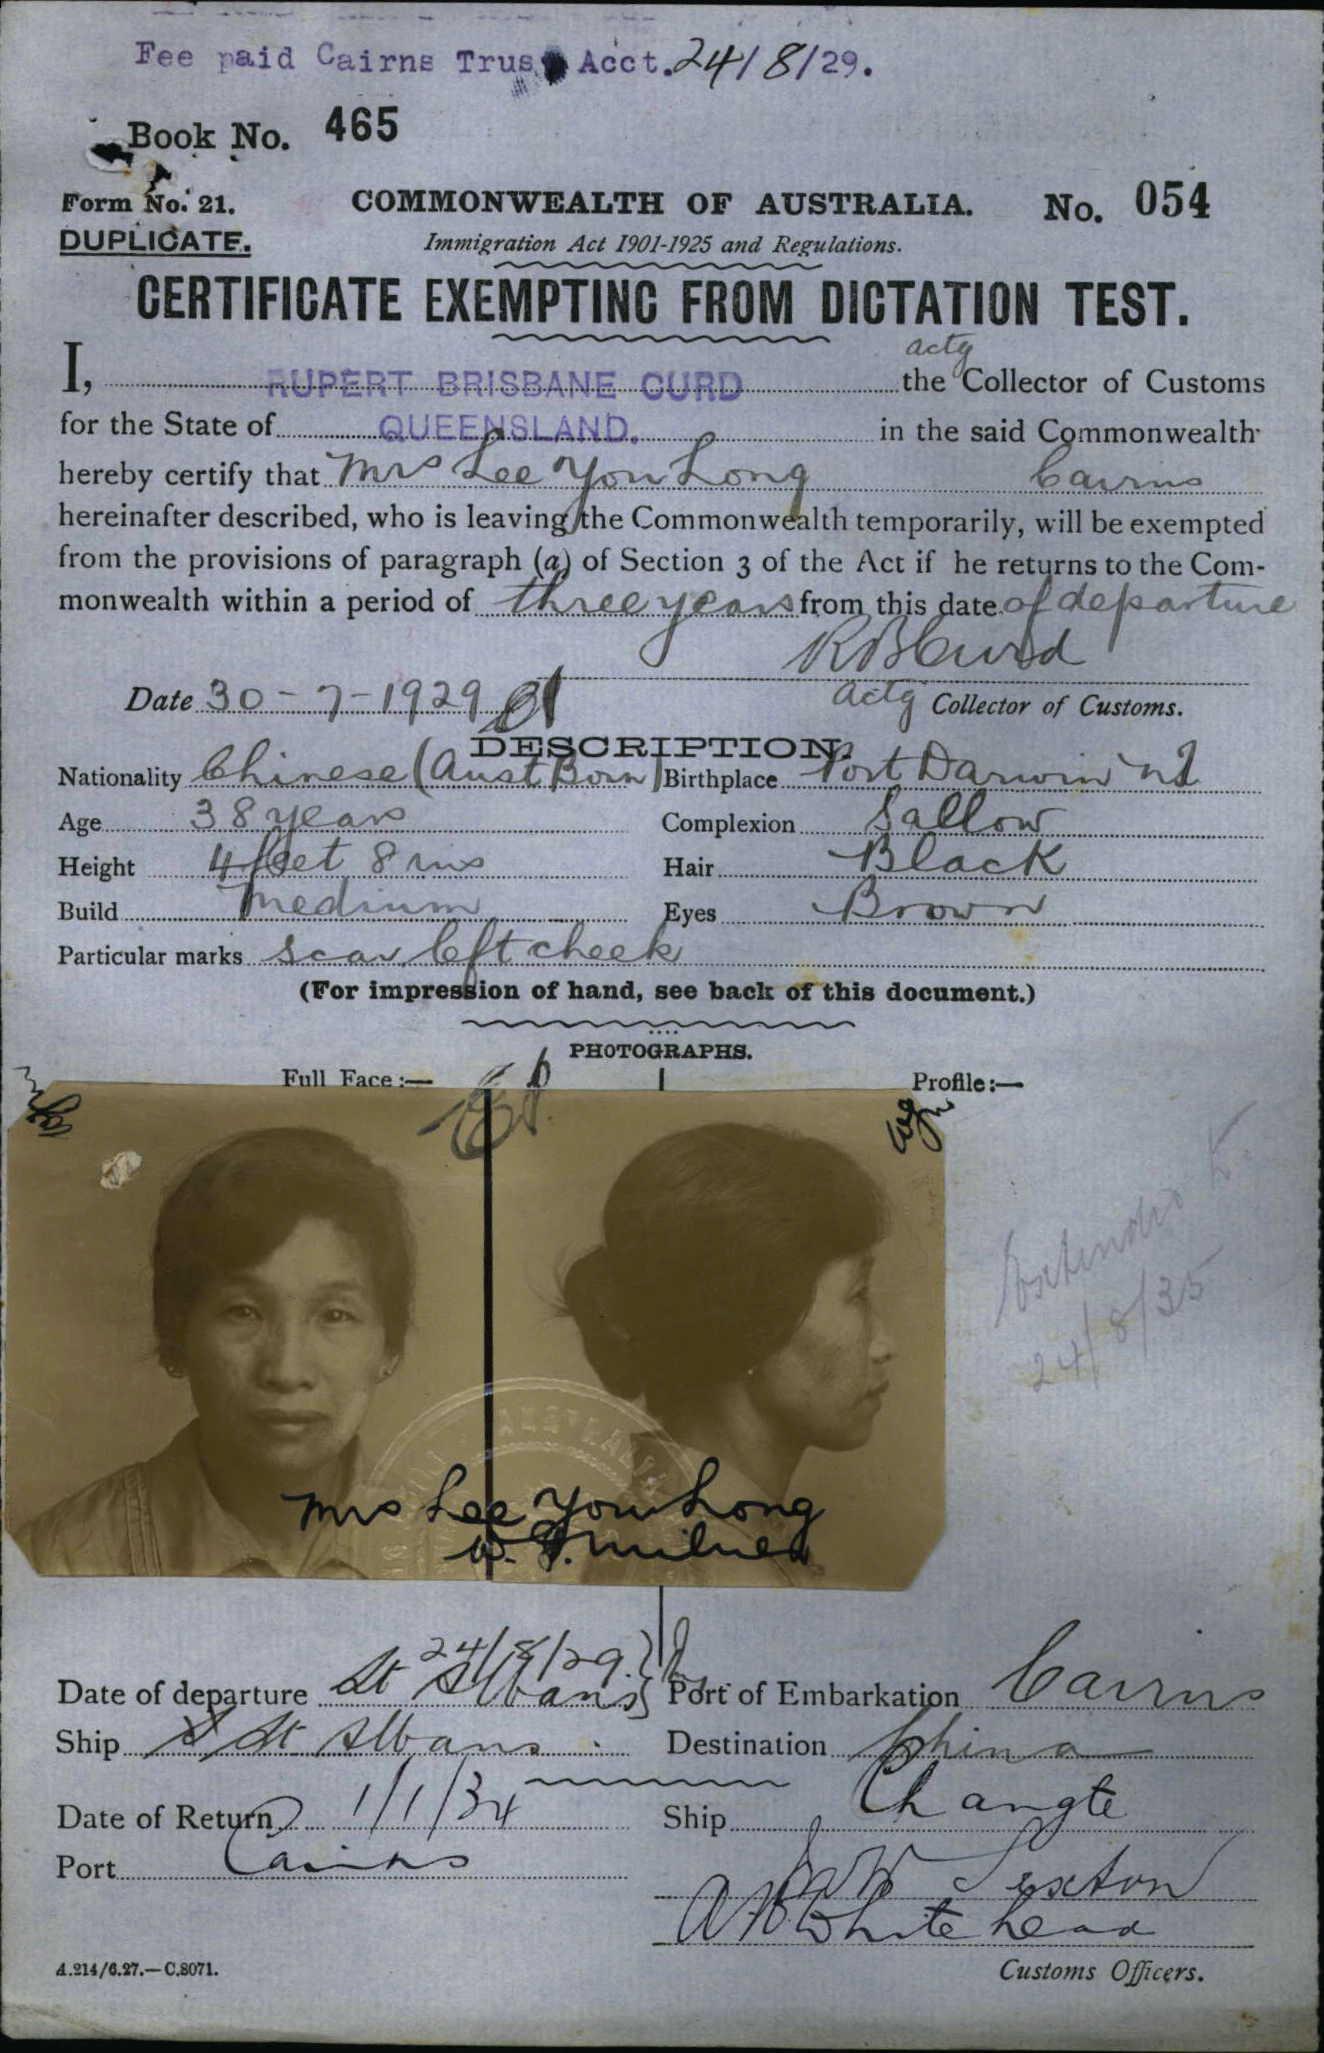 Fee paid Cairns Trust Acct. 24/8/29.
Book No. 465
Form No. 21. COMMONWEALTH OF AUSTRALIA. No. 054
DUPLICATE. Immigration Act 1901-1925 and Regulations.
CERTIFICATE EXEMPTING FROM DICTATION TEST.
actg
I, RUPERT BRISBANE CURD the Collector of Customs
for the State of QUEENSLAND. in the said Commonwealth
hereby certify that Mrs Lee You Long Cairns
hereinafter described, who is leaving the Commonwealth temporarily, will be exempted
from the provisions of paragraph (a) of Section 3 of the Act if he returns to the Com-
monwealth within a period of three years from this date of departure
R B Curd
Date 30-7-1929 actg Collector of Customs.
DESCRIPTION.
Nationality Chinese (Aust Born) Birthplace Port Darwin NT
Age 38 years Complexion Sallow
Height 4 feet 8 ins Hair Black
Build Medium Eyes Brown
Particular marks scar left cheek
(For impression of hand, see back of this document.)
PHOTOGRAPHS.
Full Face:— Profile:—
24/8/35
Mrs Lee You Long
W. J. Milne
24/8/29
Date of departure St Albans Port of Embarkation Cairns
Ship St Albans Destination China
Date of Return 1/1/34 Ship Changte
Port Cairns
Sexton
A W Whitehead
A.214/6.27.—C.8071. Customs Officers.